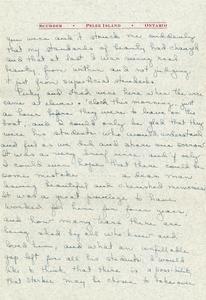 McCORMICK • PELEE ISLAND • ONTARIO
you were and it struck me suddenly
that my standards of beauty had changed
and that at last I was seeing real
beauty, from within, and not judging
it just from superficial standards.
and Dad were here when the wire
came at eleven o'clock this morning, just
an hour before they were to leave on the
boat, and I could only be glad that they
were his students who would understand
and feel as we do and share our sorrow
It was as news brief wire. and I only
I could very hopes that there could be
some mistake a dear man
leaving beautiful and cherished memories
It was a great privilege to have
worked for him for four years
and how many tears there are
being shed by all who knew and
loved him, and what an unfillable
gap left for all his students. I would
like to think that there is a possibility
that Starker may be chosen to takeover